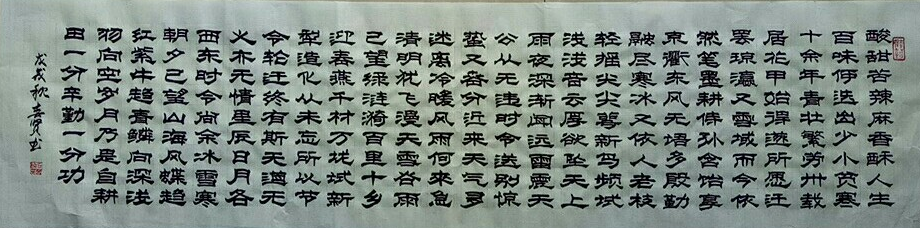 酸甜苦辣麻香酥人生
百味伊迭出少小贫寒
十余年青壮繁劳卅载
居花甲始得遂所愿迁
琼瀛又雪域而今依
然笔墨耕侍孙含饴享
东衢东风无语多殷勤
融尽寒冰又依人老枝
轻猩尖尖萼新鸟频试
浅浅音云厚欲坠天上
雨夜深渐闻远雷震天
公从无违时令送别惊
蛰又春分近来天气多
迷离冷暖风雨何来急
清明犹飞漫天雪谷雨
已望绿涟漪百里十乡
迎春燕千村万垅试新
犁造化从未忘所以节
令轮迁终有斯天道无
火亦无情星辰日月各
西东时令尚余冰雪寒
朝夕已望山海风蝶趋
红紫牛趋青鳞向深浅
物向空岁月乃是自耕
田一分辛勤一分功
戊戌秋喜贤书